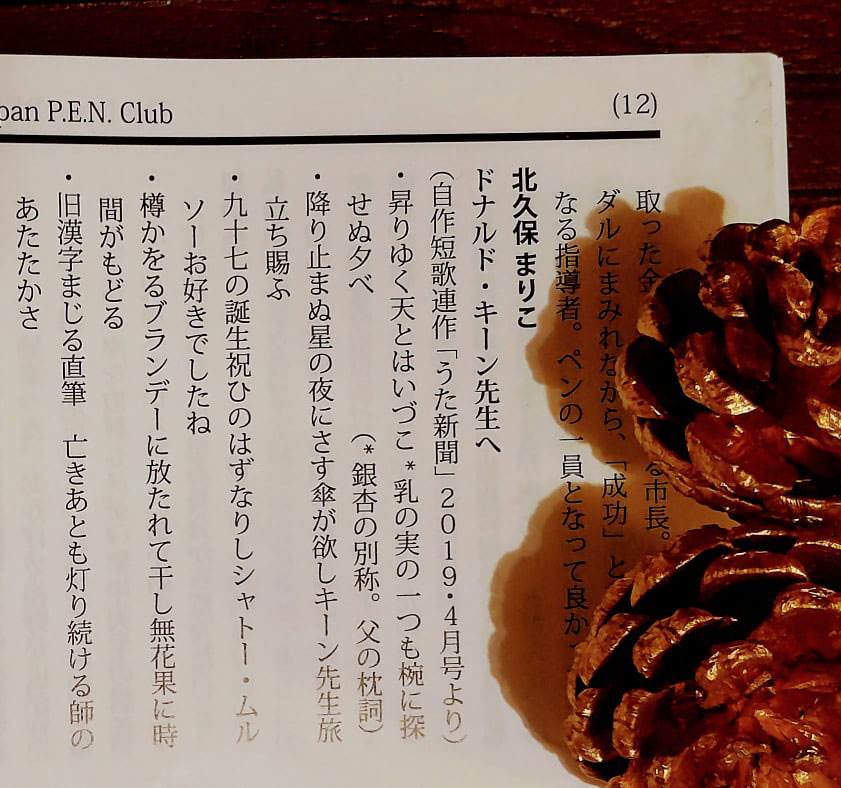 pan P.E.N. Club
(12)
取った金
ダルにまみれながら、「成功」と
る市長。
なる指導者。ペンの一員となって良か
北久保 まりこ
ドナルド・キーン先生へ
(自作短歌連作「うた新聞」2019・4月号より)
・昇りゆく天とはいづこ *乳の実の一つも椀に探
せぬ夕べ (*銀杏の別称。父の枕詞)
・降り止まぬ星の夜にさす傘が欲しキーン先生旅
立ち賜ふ
・九十七の誕生祝ひのはずなりしシャトー・ムル
ソーお好きでしたね
・樽かをるブランデーに放たれて干し無花果に時
間がもどる
・旧漢字まじる直筆 亡きあとも灯り続ける師の
あたたかさ